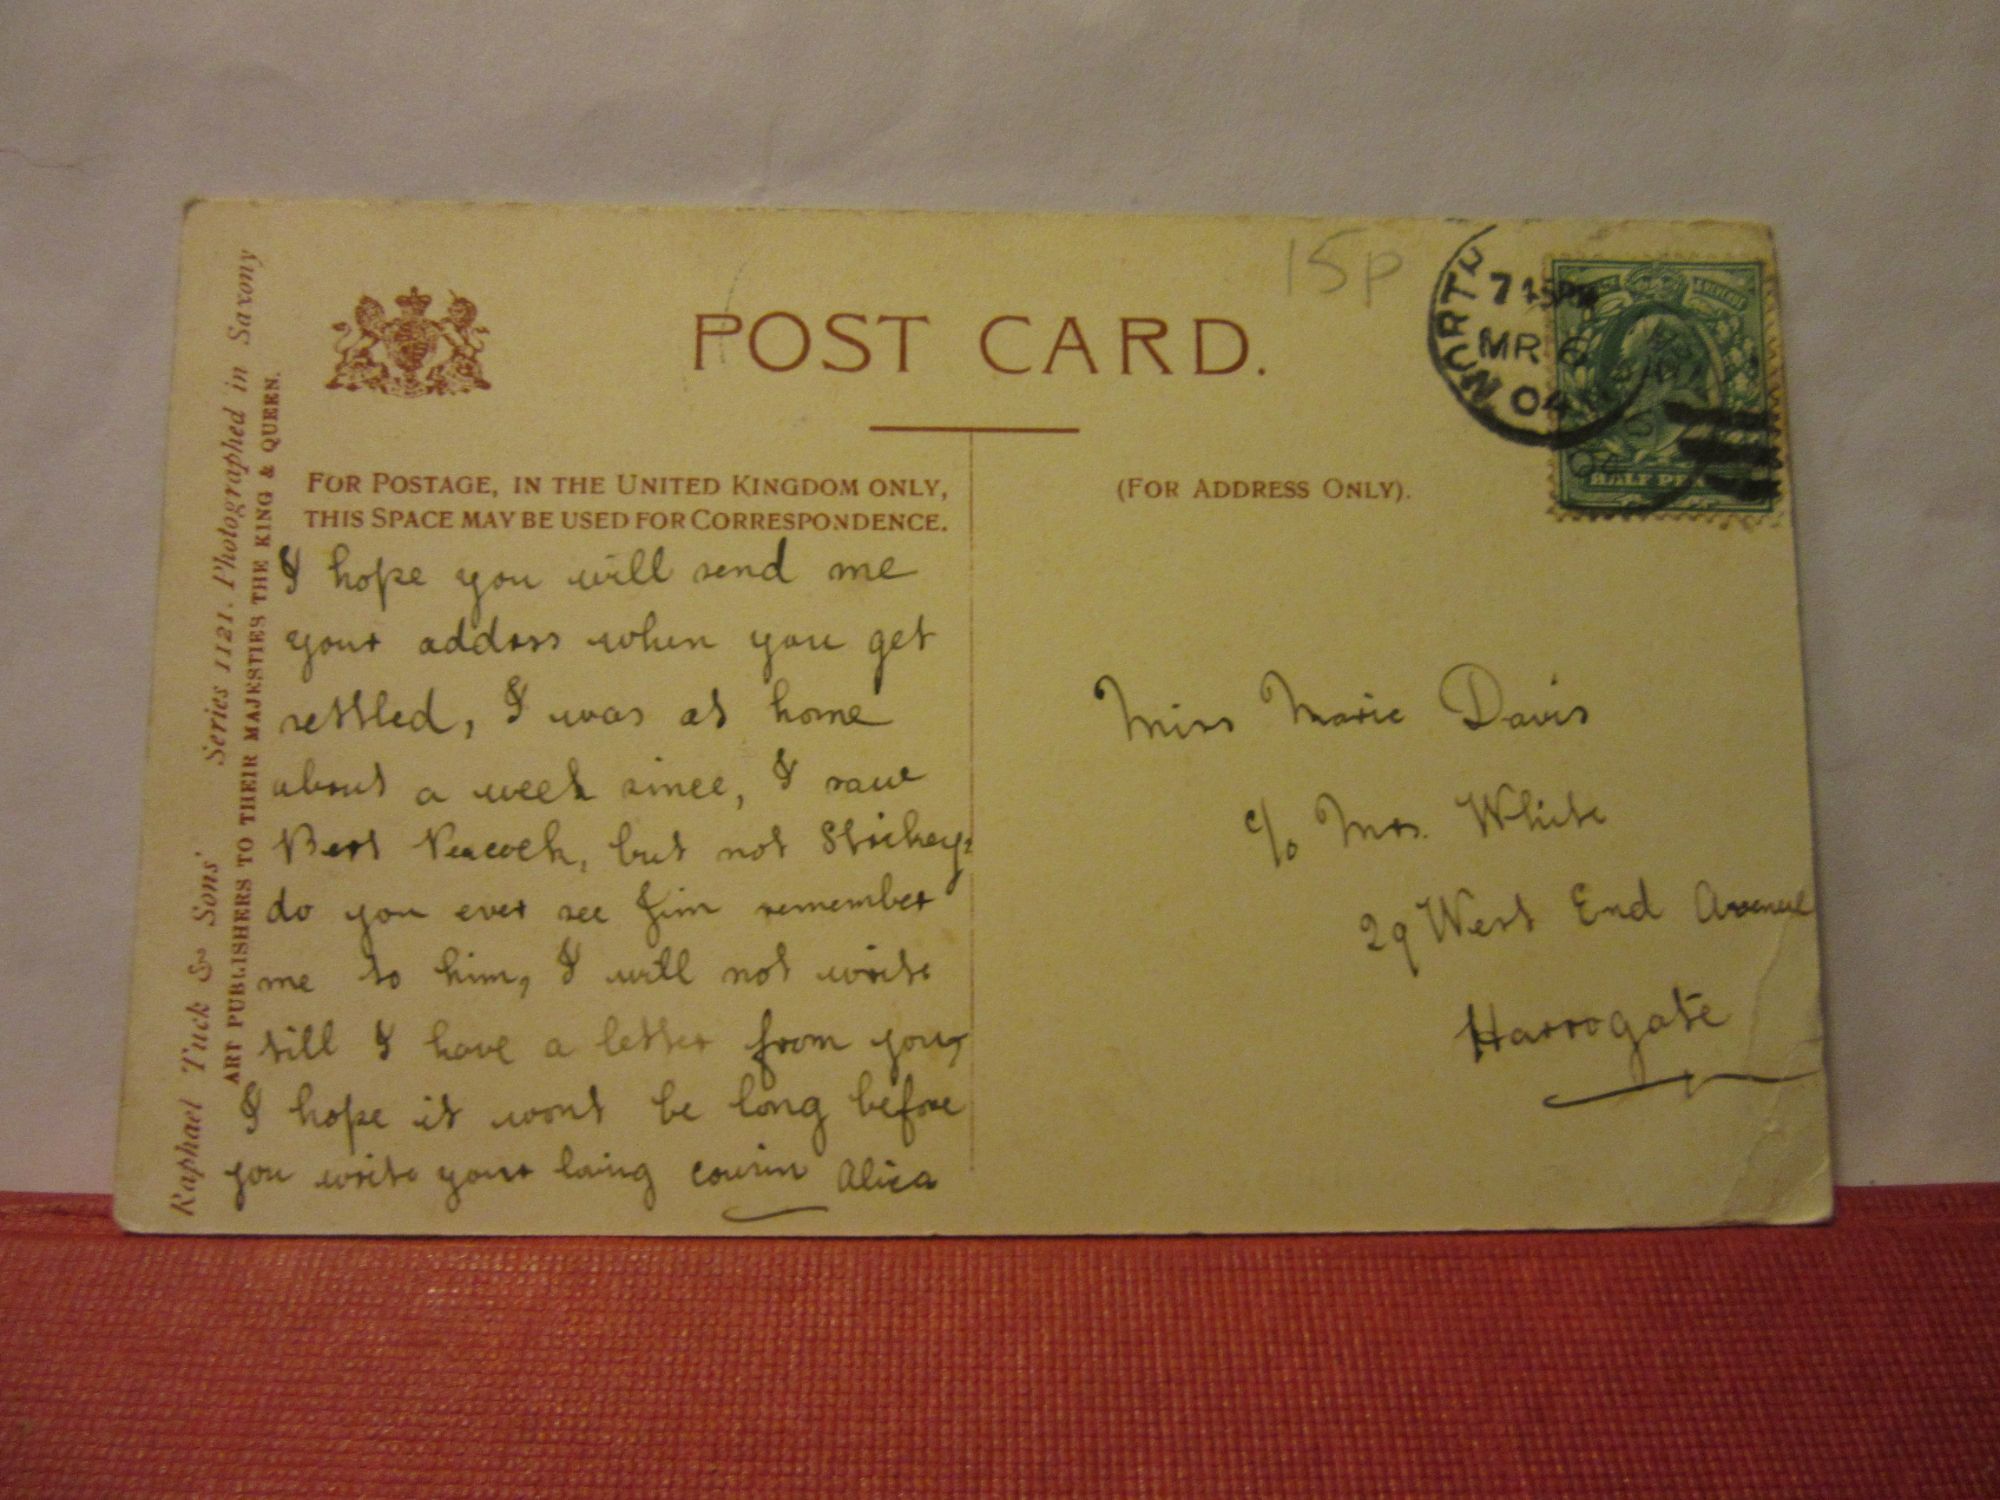 POST CARD.
15p
7 45PM
MR 6
04
HALF PEN
FOR POSTAGE, IN THE UNITED KINGDOM ONLY,
THIS SPACE MAY BE USED FOR CORRESPONDENCE.
(FOR ADDRESS ONLY).
Raphael Tuck & Sons' Series 1121. Photographed in Saxony
ART PUBLISHERS TO THEIR MAJESTIES THE KING & QUEEN.
I hope you will send me
your addrss when you get
settled, I was at home
about a week since, I saw
Bert Peacock, but not
do you ever see Jim remember
me to him, I will not write
till I have a letter from you,
I hope it wont be long before
you write your loving cousin Alica
Miss Marie Davis
c/o Mrs. White
29 West End Avenue
Harrogate